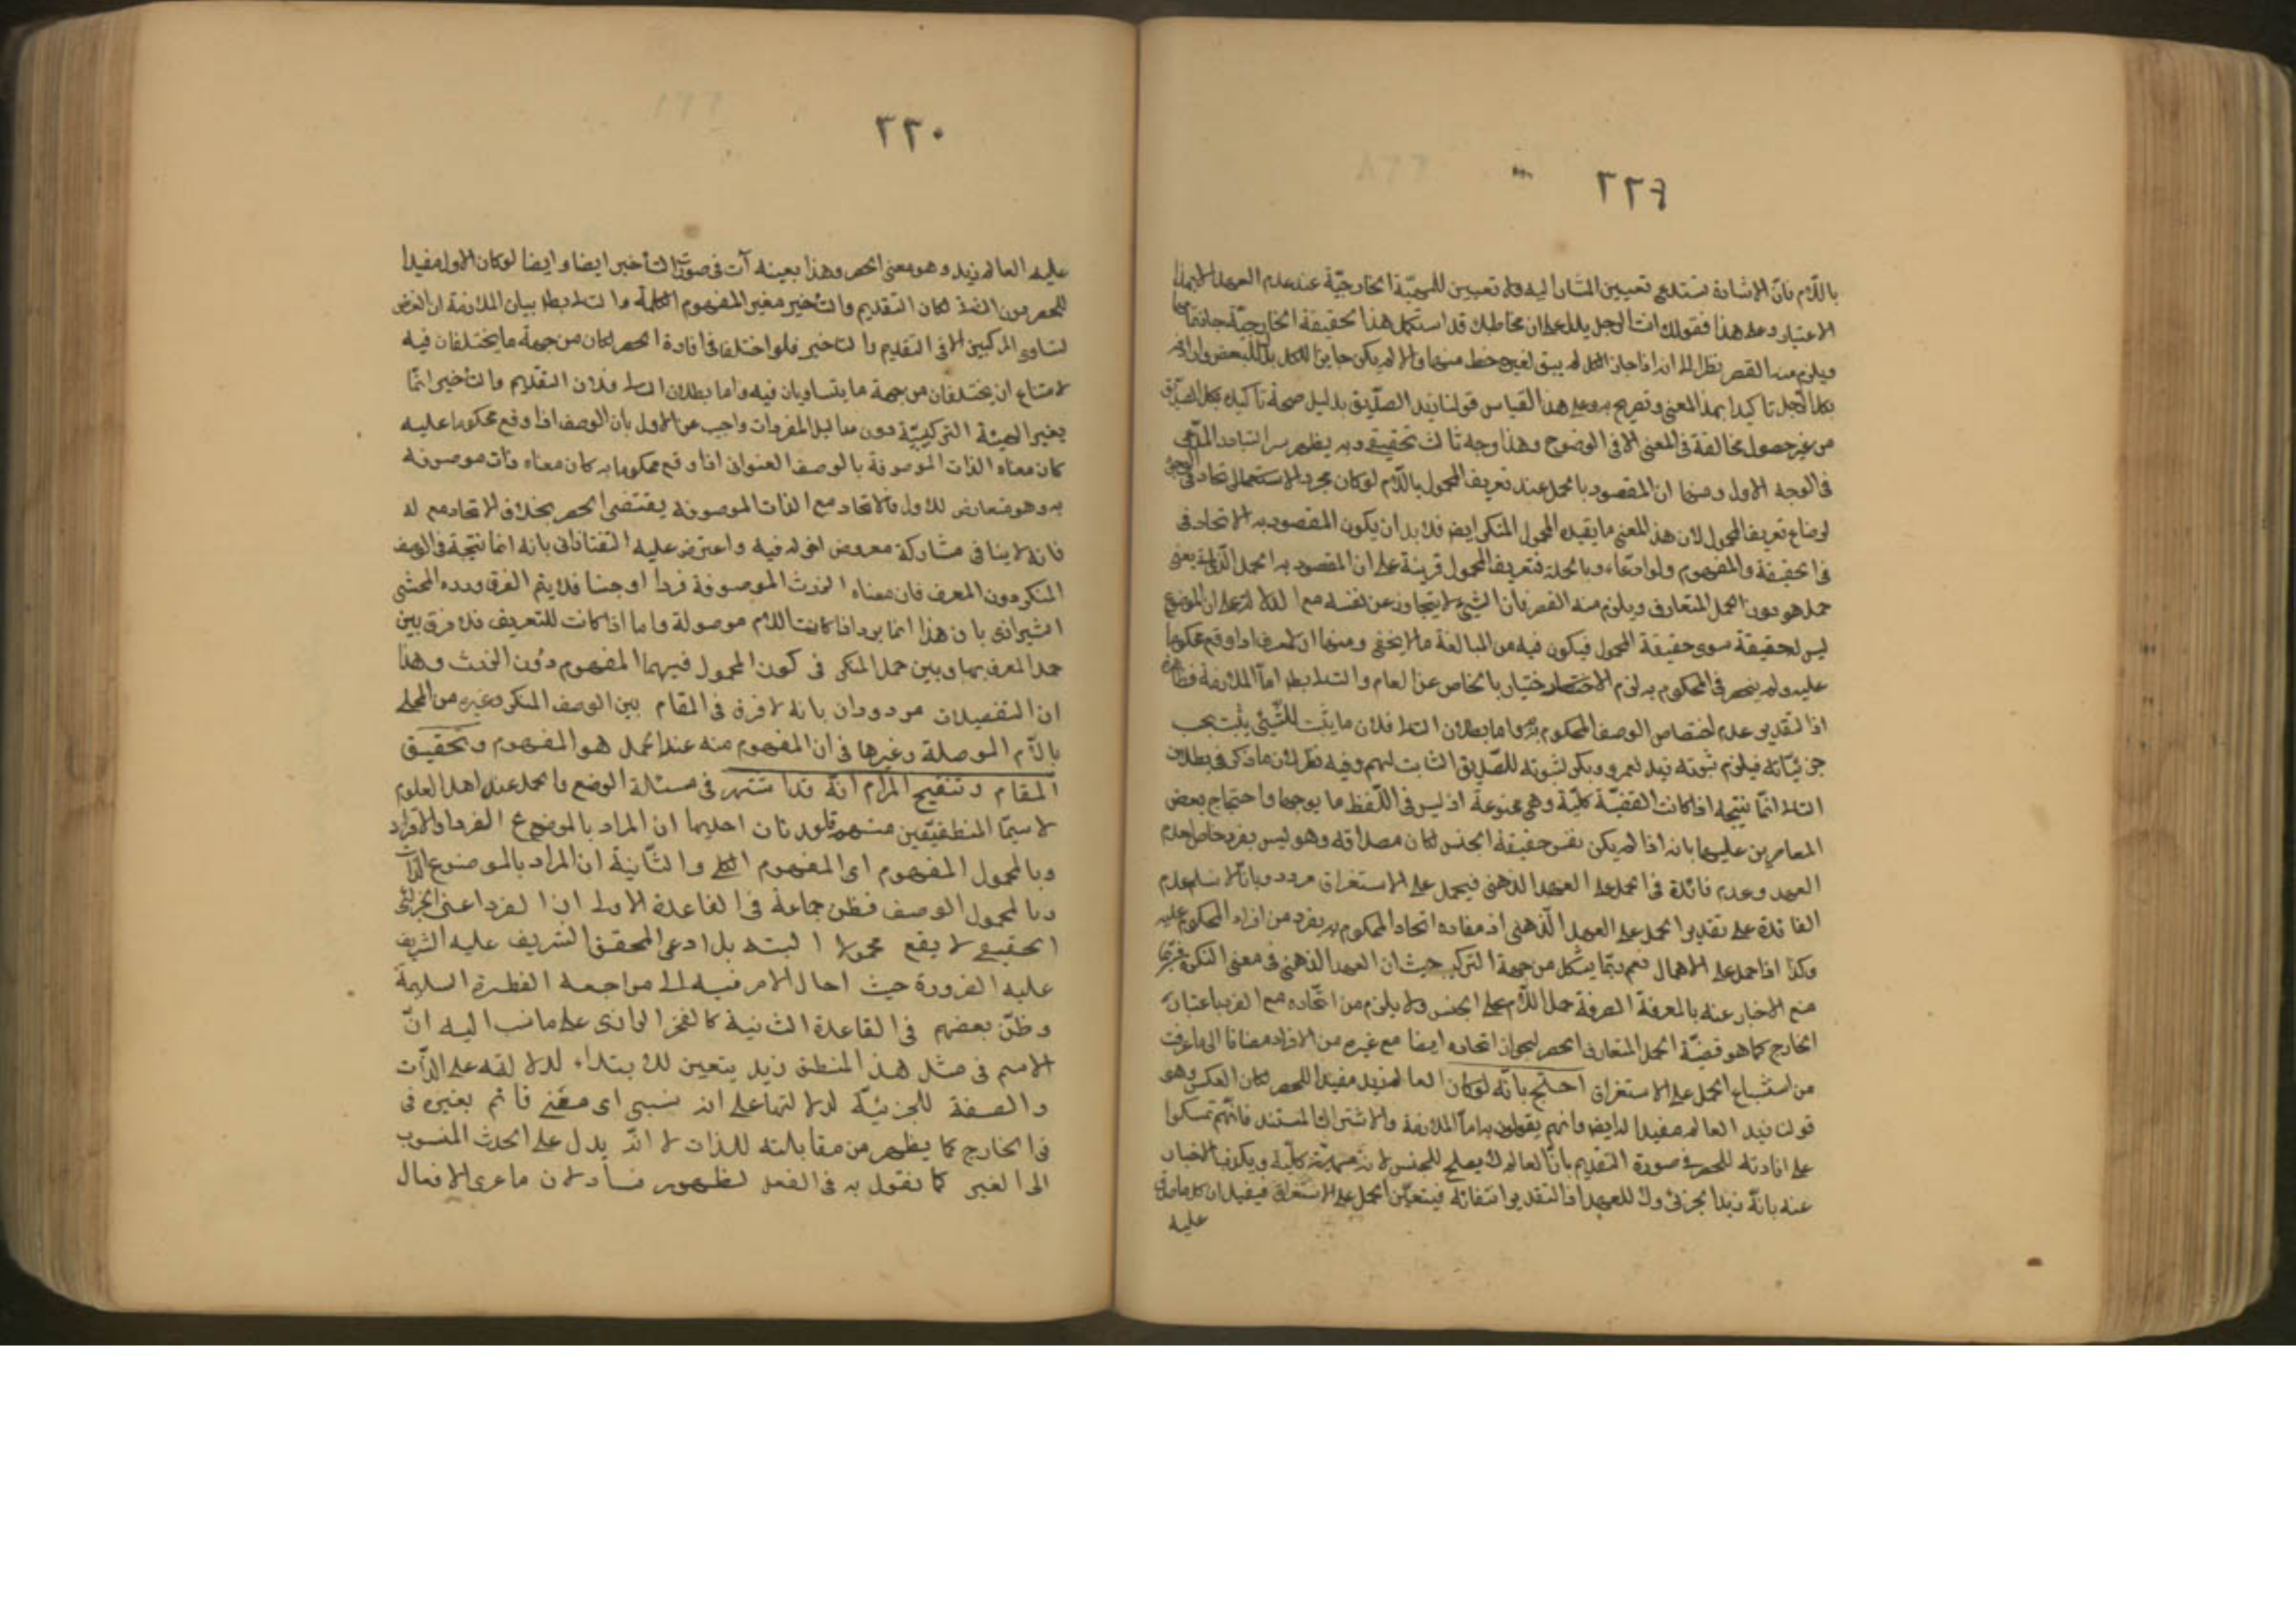 ٢٢٩
باللام فان الاشارة تستدعى تعيين المشار اليه ولا تعيين للمهيّة الخارجيّة عند عدم العهد الا بهذا
الاعتبار وعلى هذا فقولك انت الرجل يدل على ان مخاطبك قد استكمل هذا الحقيقة الخارجيّة جانتها
ويلزم منه القصر نظرا الى انه اذا جاز الكل لم يبق لغيره حظ منها والا لم يكن حايزا للكل بل للبعض
بكل الرجل تاكيدا بهذا المعنى وتصريح به وعلى هذا القياس قولنا زيد الصدّيق بدليل صحة تاكيده بكل الصدّيق
من غير حصول مخالفة فى المعنى الا فى الوضوح وهذا وجه ثالث تحقيقى وبه يظهر سر التبادر المدّعى
فى الوجه الاول ومنها ان المقصود بالحمل عند تعريف المحمول باللام لو كان مجرد الاستعمالى اتحاد فى الوجود
لضاع تعريف المحمول لان هذا المعنى ما يفيده المحمول المنكر ايضا فلا بد ان يكون المقصود به الاتحاد فى
الحقيقة والمفهوم ولو ادعاء وبالجملة فتعريف المحمول قرينة على ان المقصود به الحمل الذاتى يعنى
حمل هو هو دون الحمل المتعارف ويلزم منه القصر فان الشىء لا يتجاوز عن نفسه مع الدلالة على ان الموضوع
ليس لحقيقة سوى حقيقة المحمول فيكون فيه من المبالغة ما لا يخفى ومنها ان المعرف اذا وقع محكوما
عليه ولم ينحصر فى المحكوم به لزم الاخبار بالخاص عن العام والتالى بط اما الملازمة فظاهرة
اذ التقدير عدم اختصاص الوصف المحكوم به واما بطلان التالى فلان ما يثبت للشىء يثبت بحسب
جزئيّاته فيلزم ثبوته زيد لعمرو وبكر لثبوته للصّديق الثابت لهم وفيه نظر لان ما ذكر فى بطلان
التالى انّما يتجه اذا كانت القضيّة كليّة وهى ممنوعة اذ ليس فى اللّفظ ما يوجبها واحتجاج بعض
المعاصرين عليها بانه اذا لم يكن نفس حقيقة الجنس لكان مصداقه وهو ليس بفرد خاص لعدم
العهد وعدم فائدة فى الحمل على العهد الذهنى فيحمل على الاستغراق مردود بانّا لا نسلم عدم
الفائدة على تقدير الحمل على العهد الذهنى اذ مفاده اتحاد المحكوم به بفرد من افراد المحكوم عليه
وكذا اذا حمل على الاهمال نعم ربّما يشكل من جهة التركيب حيث ان العهد الذهنى فى معنى النكرة فربّما
منع الاخبار عنه بالمعرفة الصرفة حمل اللام على الجنس ولا يلزم من اتّحاده مع الفرد باعتبار
الخارج كما هو قضيّة الحمل المتعارف الحصر لجواز اتحاده ايضا مع غيره من الافراد مضافا الى ما عرفت
من استشباع الحمل على الاستغراق احتج بانّه لو كان العالم زيد مفيدا للحصر لكان العكس وهو
قولنا زيد العالم مفيدا له ايضا وانهم يقولون به اما الملازمة والاشتراك المستند فانّهم تمسكوا
على افادته للحصر فى صورة التقديم بانّ العالم لا يصلح للجنس لانه مهيّة كليّة ويكذب الاخبار
عنه بانّه زيد الجزئى ولا للعهد اذ التقدير انتفائه فيتعيّن الحمل على الاستغراق فيفيد ان كل ما صدق
عليه
٢٣٠
عليه العالم زيد وهو معنى الحصر وهذا بعينه آت فى صورة التأخير ايضا وايضا لو كان الاول مفيدا
للحصر دون الثانى لكان التقديم والتأخير مغير المفهوم الكلمة والتالى بط بيان الملازمة ان الغرض
تساوى المركبين الا فى التقديم والتاخير فلو اختلفا فى افادة الحصر لكان من جهة ما يختلفان فيه
لامتناع ان يختلفان من جهة ما يتساويان فيه واما بطلان التالى فلان التقديم والتأخير انّما
يغير الهيئة التركيبيّة دون مدابل المفردات واجب عن الاول بان الوصف اذا وقع محكوما عليه
كان معناه الذات الموصوفة بالوصف العنوانى اذا وقع محكوما به كان معناه ذات موصوفة
به وهو متعارض للاول فالاتحاد مع الذات الموصوفة يقتضى الحصر بخلاف الاتحاد مع له
فانه لا ينافى مشاركة معروض اخر له فيه واعترض عليه التفتازانى بانه انما يتجه فى الوصف
المنكر دون المعرف فان معناه الذات الموصوفة فردا او جنسا فلا يتم الفرق ورده المحشى
الشيرازى بان هذا انما يرد اذا كانت اللام موصولة واما اذا كانت للتعريف فلا فرق بين
حمل المعرف بها وبين حمل المنكر فى كون المحمول فيهما المفهوم دون الذات وهذا
ان التفصيلان مردودان بانه لا فرق فى المقام بين الوصف المنكر وغيره من المحلى
باللام الموصلة وغيرها فى ان المفهوم منه عند الحمل هو المفهوم وتحقيق
المقام وتنقيح المرام انّه قد اشتهر فى مسئلة الوضع والحمل عند اهل العلوم
لا سيّما المنطقيّين منهم قاعدتان احديهما ان المراد بالموضوع الفرد او الافراد
وبالمحمول المفهوم اى المفهوم الكلى والثانية ان المراد بالموضوع الذات
وبالمحمول الوصف فظن جماعة فى القاعدة الاولى ان الفرد اعنى الجزئى
الحقيقى لا يقع محمولا البته بل ادعى المحقق الشريف عليه الشريف
عليه الضرورة حيث احال الامر فيه الى مراجعة الفطرة السليمة
وظنّ بعضهم فى القاعدة الثانية كالفخر الرازى على ما نسب اليه انّ
الاسم فى مثل هذا المنطلق زيد يتعين للابتداء لدلالته على الذّات
والصفة للجزئيّة لدلالتها على انه نسبى اى معنى قائم بغيره فى
فى الخارج كما يظهر من مقابلته للذات لا انّه يدل على الحدث المنسوب
الى الغير كما نقول به فى الفعل لظهور فساد لان ما عرى الافعال